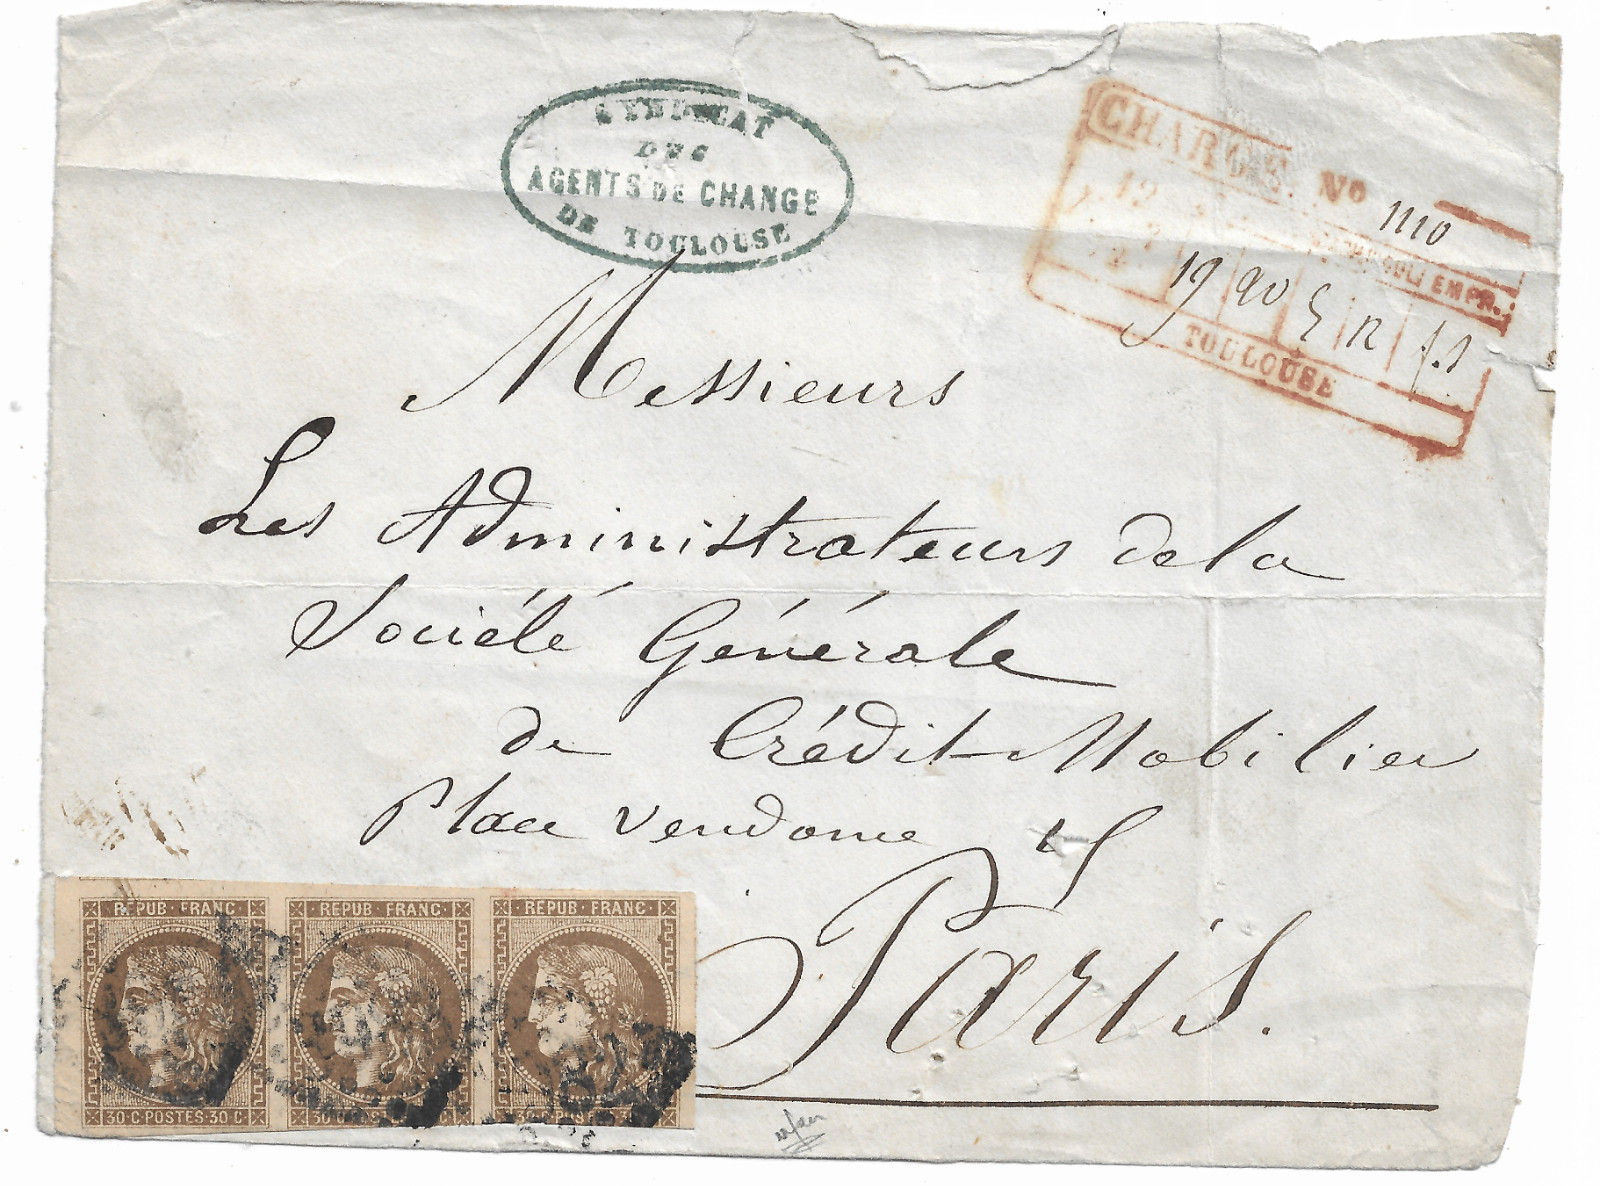 SYNDICAT
DES
AGENTS DE CHANGE
DE TOULOUSE
CHARGÉ. No 1110
EMPR.
19 90
TOULOUSE
Messieurs
Les Administrateurs de la
Société Générale
de Crédit Mobilier
Place Vendome 15
Paris.
REPUB · FRANC · REPUB · FRANC · REPUB · FRANC ·
30 · C · POSTES · 30 · C ·